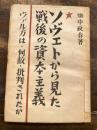 畑中政春著
ソヴェトから見た
戦後の資本主義
ヴァルガは何故批判されたか